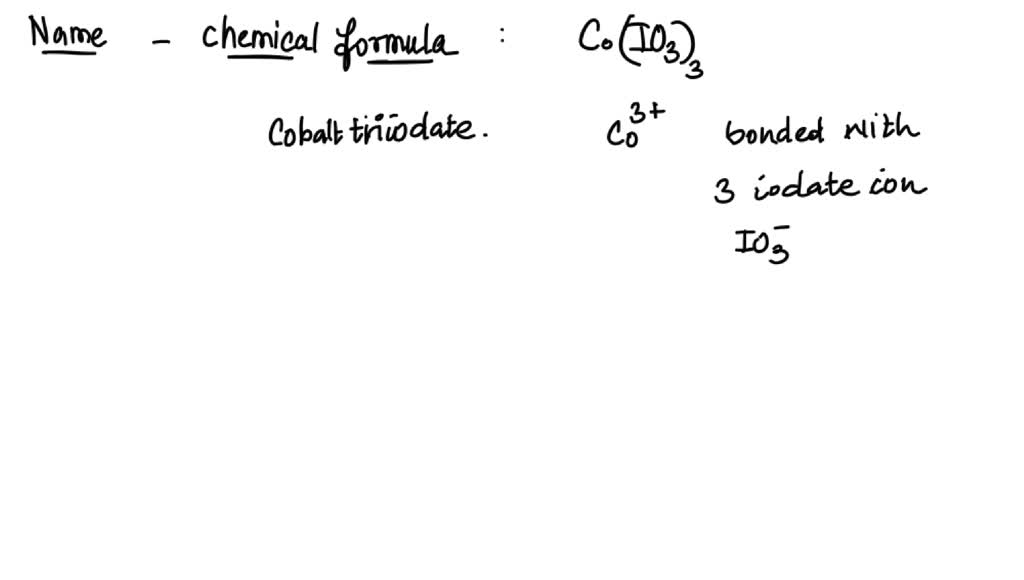 Name - chemical formula : Co(IO₃)₃
Cobalt triiodate. Co³⁺ bonded with
3 iodate ion
IO₃⁻